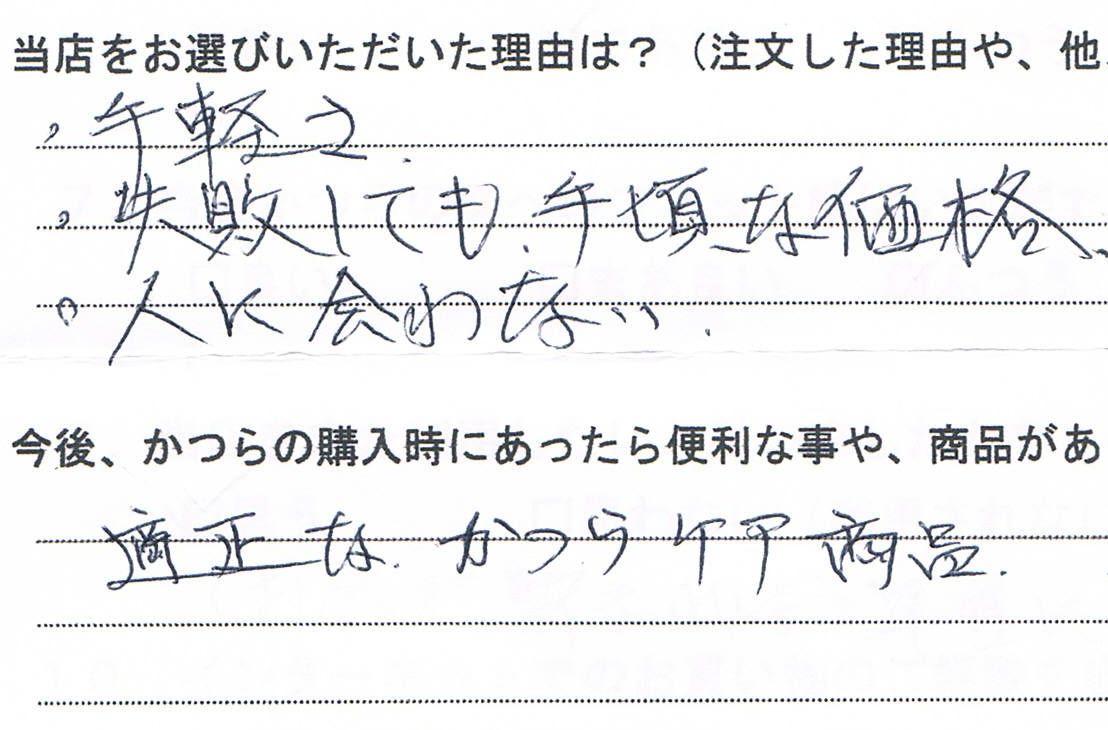 当店をお選びいただいた理由は?(注文した理由や、他
・手軽さ
・失敗しても、手頃な価格、
・人に会わない.
今後、かつらの購入時にあったら便利な事や、商品があ
適正な.かつらケア商品.